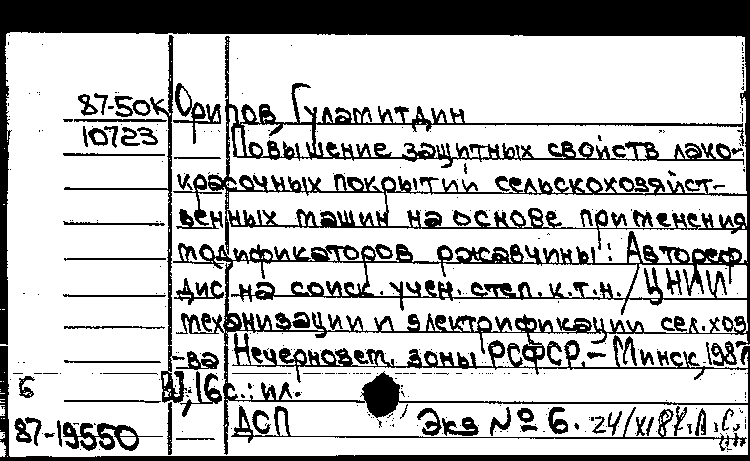 87-50К Орипов, Гуламитдин
10723 Повышение защитных свойств лако-
красочных покрытий сельскохозяйст-
венных машин на основе применения
модификаторов ржавчины: Автореф.
дис. на соиск. учен. степ. к.т.н. / ЦНИИ
механизации и электрификации сел. хоз
-ва Нечернозем. зоны РСФСР. – Минск, 1987
6 16 с.: ил.
87-19550 ДСП Экз № 6. 24/XI 87.